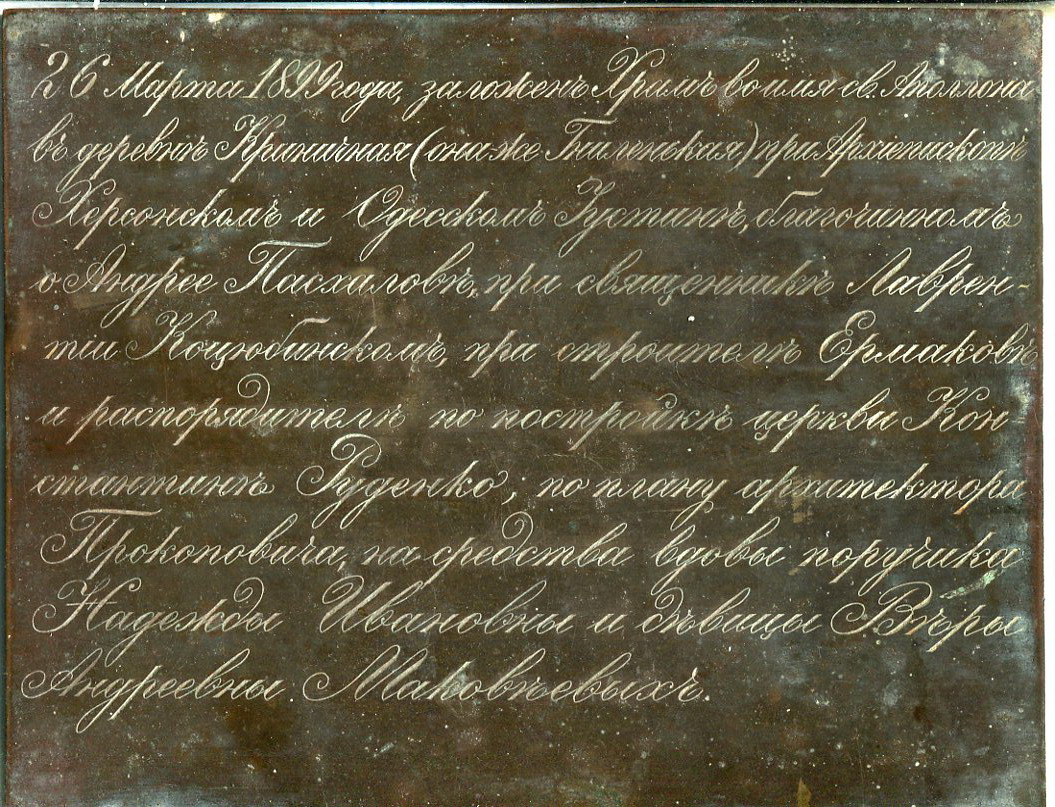 26 Марта 1899 года, заложенъ Храмъ во имя св. Аполлона
въ деревнѣ Криничная (она же Гниленькая) при Архіепископѣ
Херсонскомъ и Одесскомъ Іустинѣ, благочинномъ
о. Андрее Пасхаловѣ, при священникѣ Лаврен-
тіи Коцюбинскомъ, при строителѣ Ермаковѣ
и распорядителѣ по постройкѣ церкви Кон
стантинѣ Руденко; по плану архитектора
Прокоповича, на средства вдовы поручика
Надежды Ивановны и дѣвицы Вѣры
Андреевны Маковѣевыхъ.